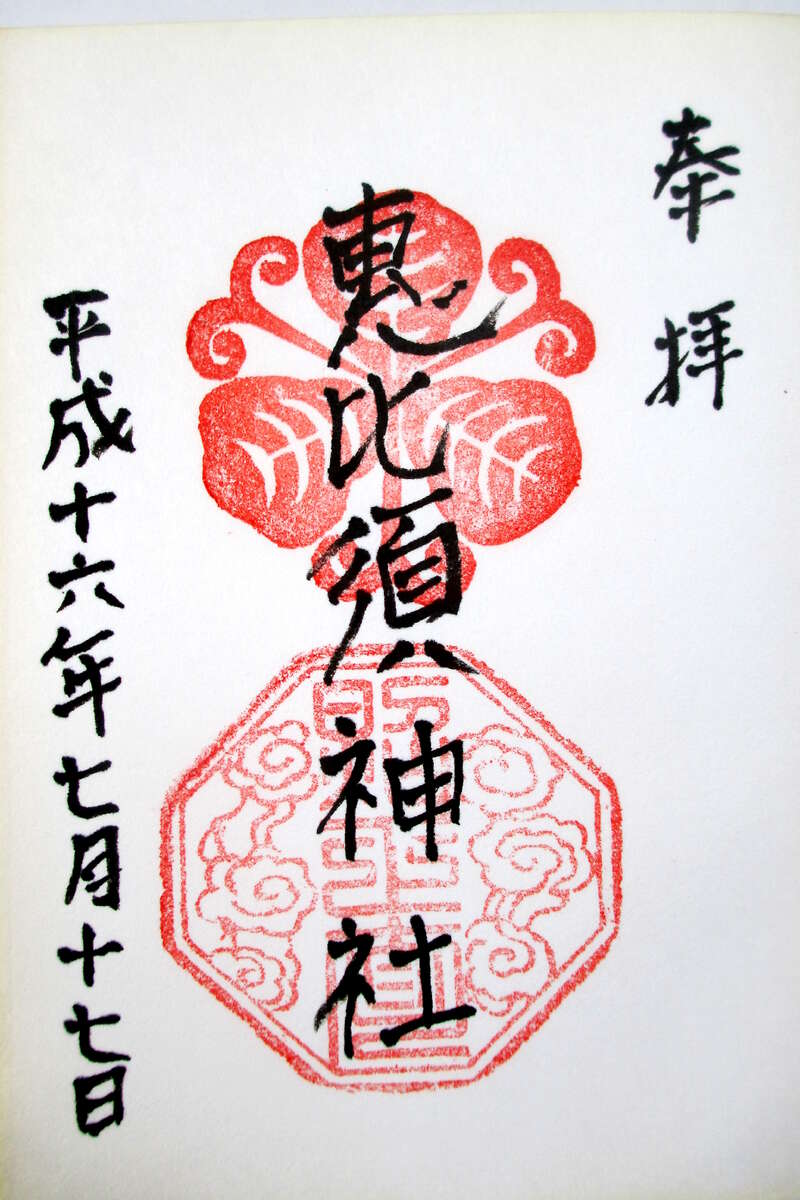 奉拝
恵比須神社
平成十六年七月十七日